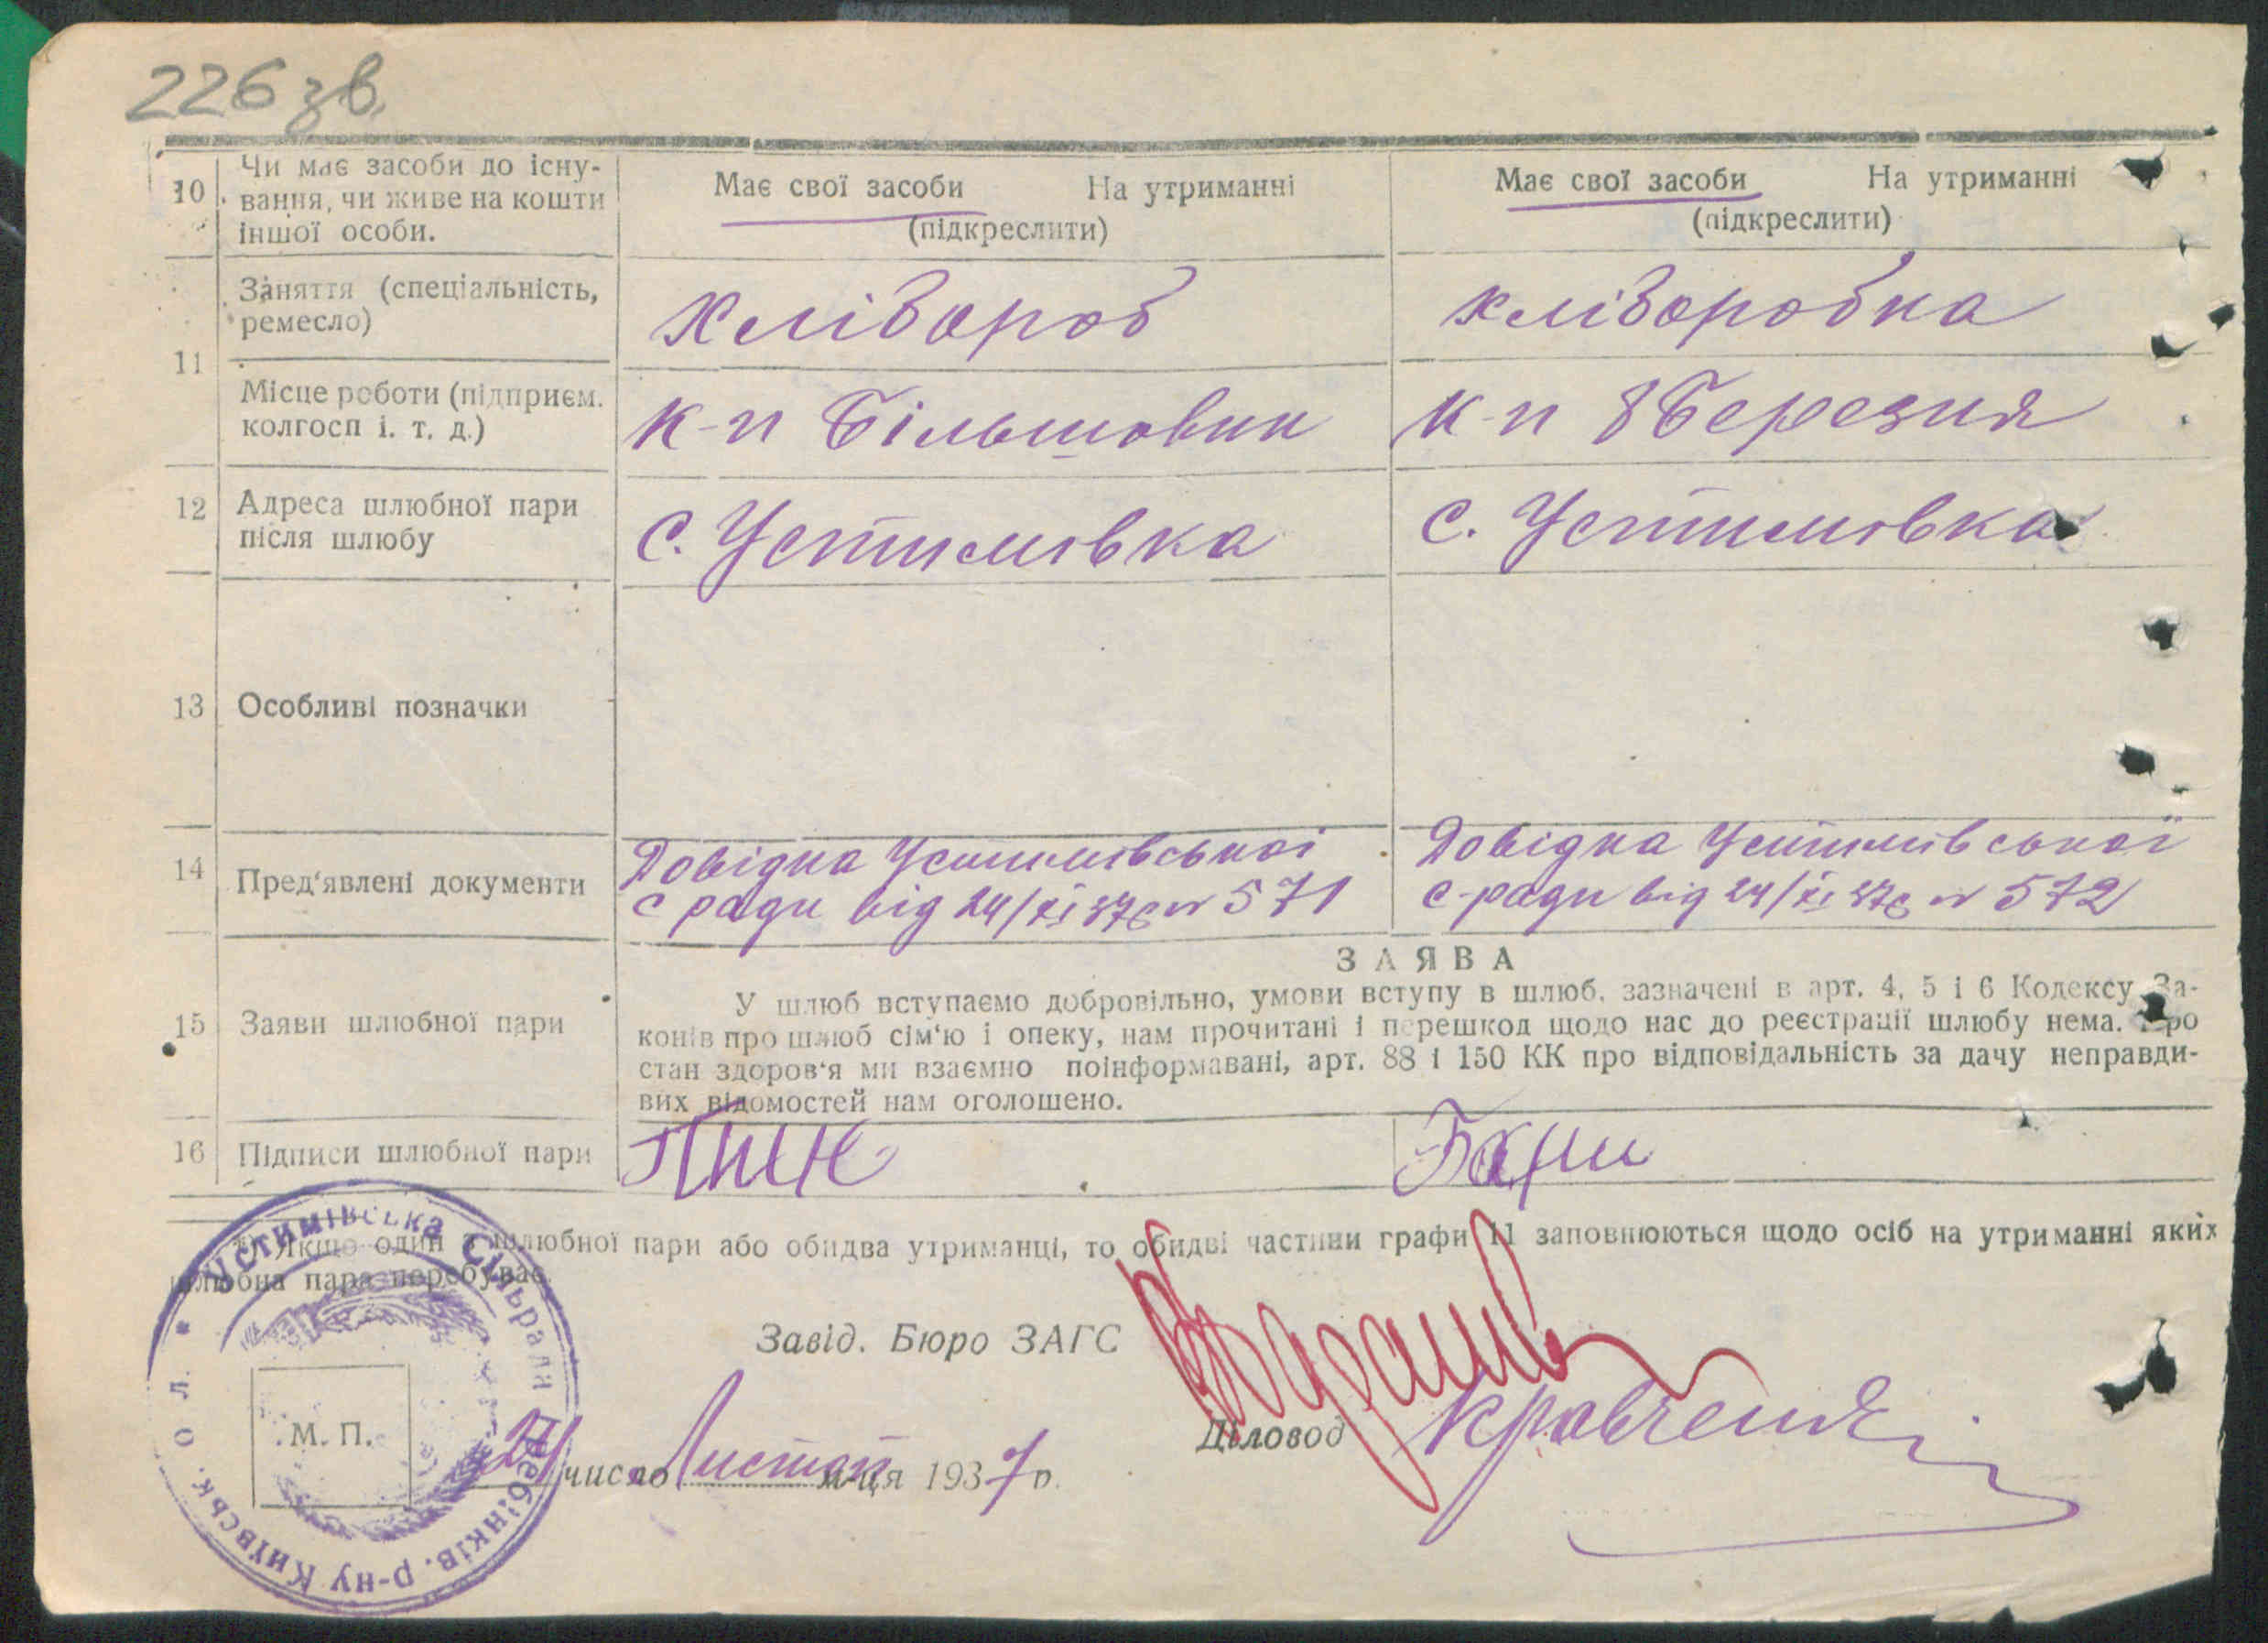 226 зв.
10. Чи має засоби до існу-
вання, чи живе на кошти
іншої особи.
Має свої засоби На утриманні
(підкреслити)
Має свої засоби На утриманні
(підкреслити)
11
Заняття (спеціальність,
ремесло)
Хлібороб
хліборобка
Місце роботи (підприєм.
колгосп і. т. д.)
к-п Більшовик
к-п 8 Березня
12 Адреса шлюбної пари
після шлюбу
с. Устимівка
с. Устимівка
13 Особливі позначки
14 Пред'явлені документи
Довідка Устимівської
с ради від 24/XI 37р № 571
Довідка Устимівської
с-ради від 24/XI 37р № 572
15 Заяви шлюбної пари
ЗАЯВА
У шлюб вступаємо добровільно, умови вступу в шлюб, зазначені в арт. 4, 5 і 6 Кодексу За-
конів про шлюб сім'ю і опеку, нам прочитані і перешкод щодо нас до реєстрації шлюбу нема. Про
стан здоров'я ми взаємно поінформавані, арт. 88 і 150 КК про відповідальність за дачу неправди-
вих відомостей нам оголошено.
16 Підписи шлюбної пари
*) Якщо один з шлюбної пари або обидва утриманці, то обидві частини графи 11 заповнюються щодо осіб на утриманні яких
шлюбна пара перебуває.
Завід. Бюро ЗАГС
Діловод Кравченко
М. П.
24 число Листоп м-ця 1937 р.
* Устимівська Сільрада Гребінків. р-ну Київськ. обл.